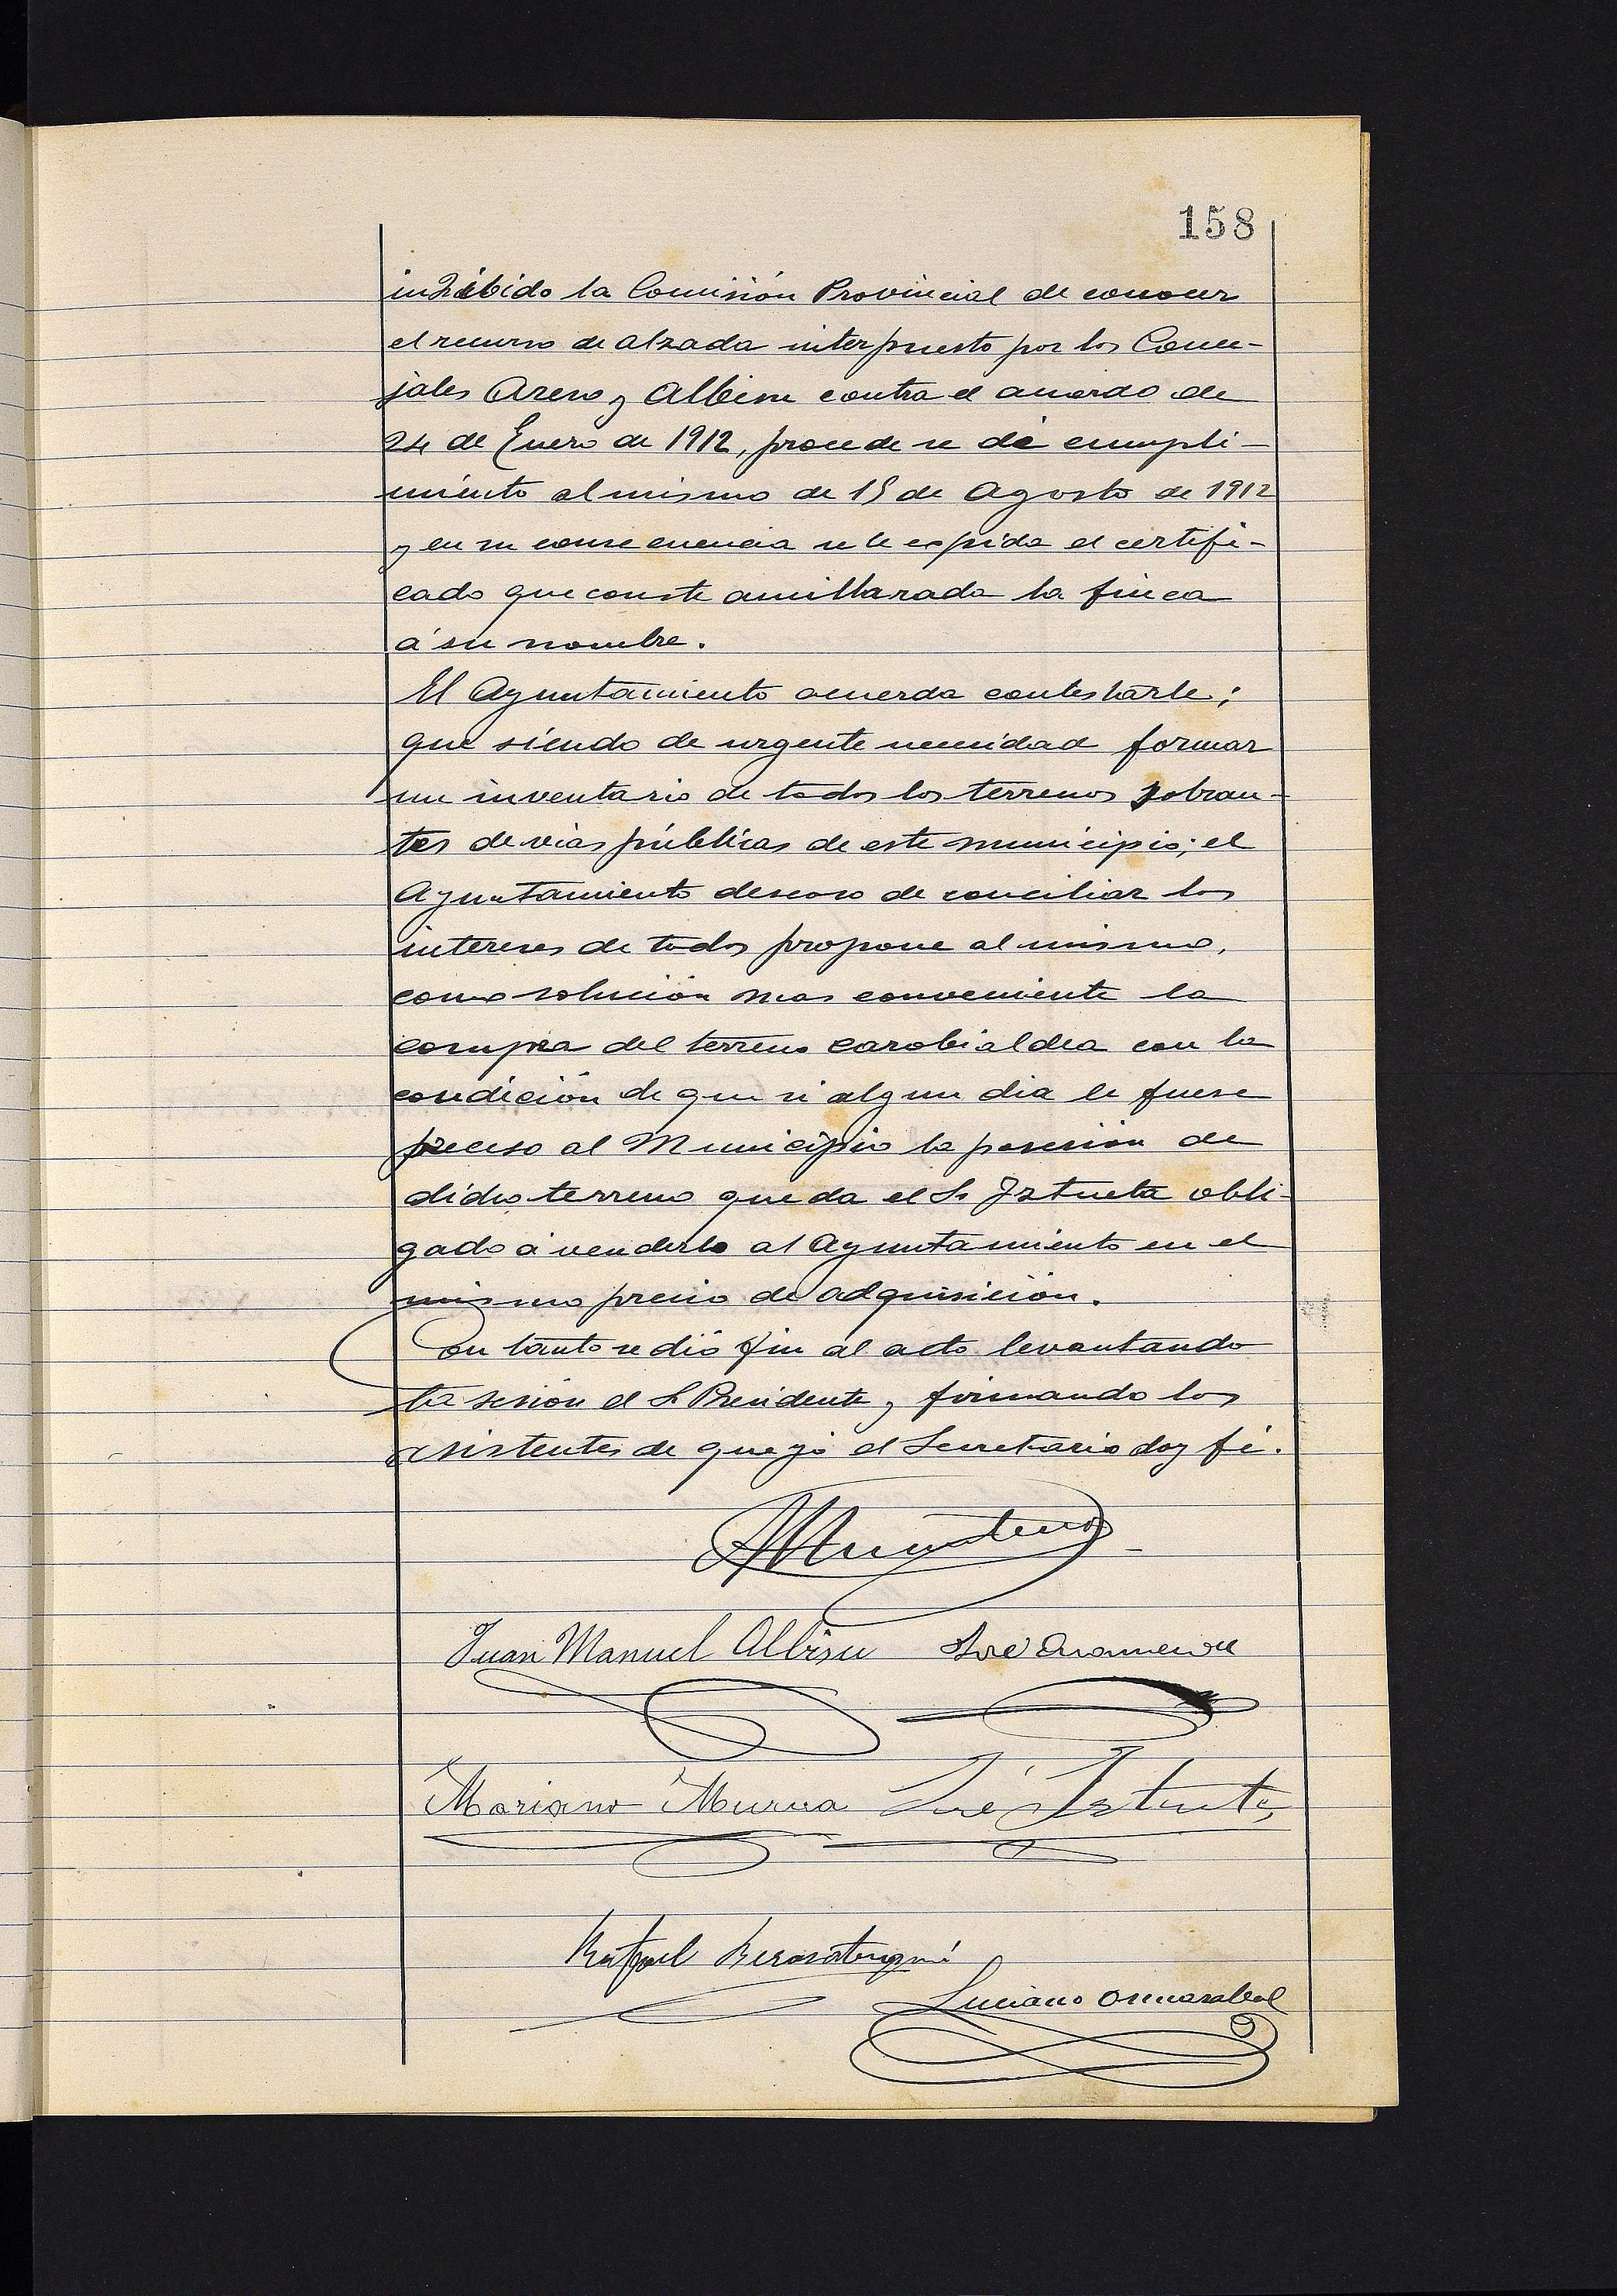 158
inhibido la Comisión Provincial de conocer
el recurso de alzada interpuesto por los Conce-
jales Areso y Albisu contra el acuerdo de
24 de Enero de 1912, procede se dé cumpli-
miento al mismo de 15 de Agosto de 1912
y en su consecuencia se le expida el certifi-
cado que conste amillarada la finca
á su nombre.
El Ayuntamiento acuerda contestarle;
que siendo de urgente necesidad formar
un inventario de todos los terrenos sobran-
tes de vías públicas de este municipio; el
Ayuntamiento deseoso de conciliar los
intereses de todos propone al mismo,
como solución mas conveniente la
compra del terreno carobialdea con la
condición de que si algun dia le fuese
preciso al Municipio la posesión de
dicho terreno queda el Sr Iztueta obli-
gado á venderlo al Ayuntamiento en el
mismo precio de adquisición.
Con tanto se dió fin al acto levantando
la sesión el Sr Presidente y firmando los
asistentes de que yo el Secretario doy fé.
Juan Manuel Albisu José
Mariano Murua José Iztueta
Rafael Berasategui
Luciano